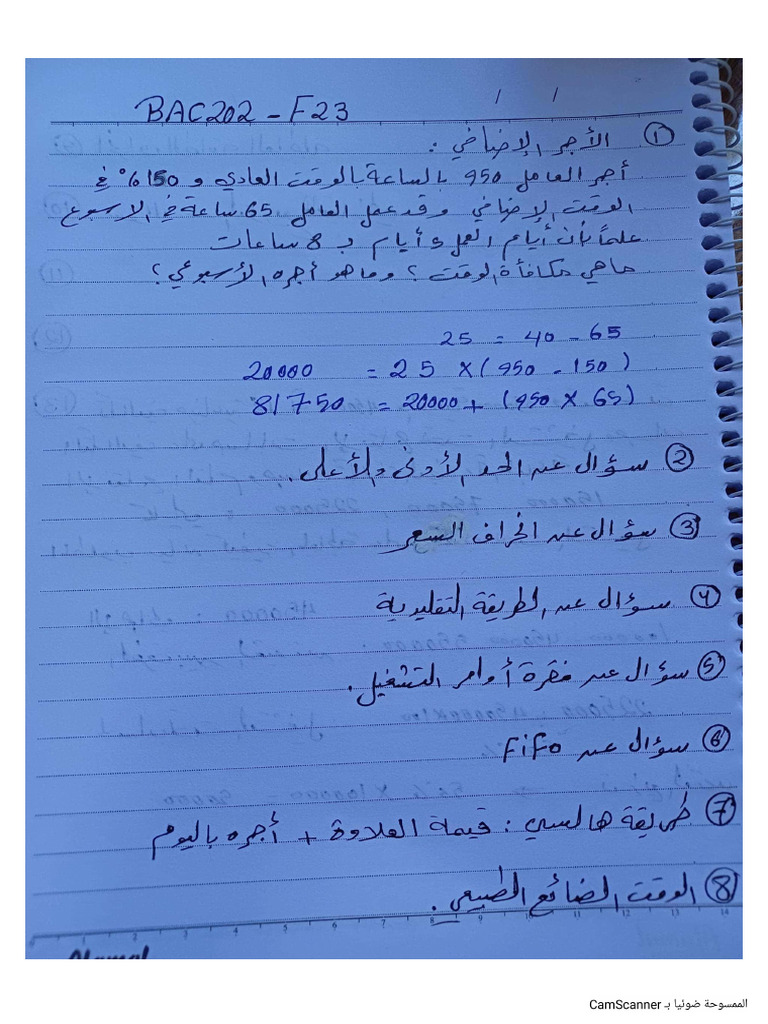 BAC202 - F23
/ /
① الأجر الإضافي :
أجر العامل 950 بالساعة بالوقت العادي و 150% في
الوقت الإضافي وقد عمل العامل 65 ساعة في الاسبوع
علماً بأن أيام العمل 5 أيام بـ 8 ساعات
ماهي مكافأة الوقت ؟ وماهو أجره الأسبوعي ؟
65 - 40 = 25
(150 - 950) × 25 = 20000
(65 × 950) + 20000 = 81750
② سؤال عن الحد الأدنى والأعلى .
③ سؤال عن انحراف السعر
④ سؤال عن الطريقة التقليدية
⑤ سؤال عن فقرة أوامر التشغيل .
⑥ سؤال عن FiFo
⑦ طريقة هالسي : قيمة العلاوة + أجره باليوم
⑧ الوقت الضائع الطبيعي .
0 1 2 3 4 5 6 7 8 9 10 11 12 13 14
الممسوحة ضوئيا بـ CamScanner